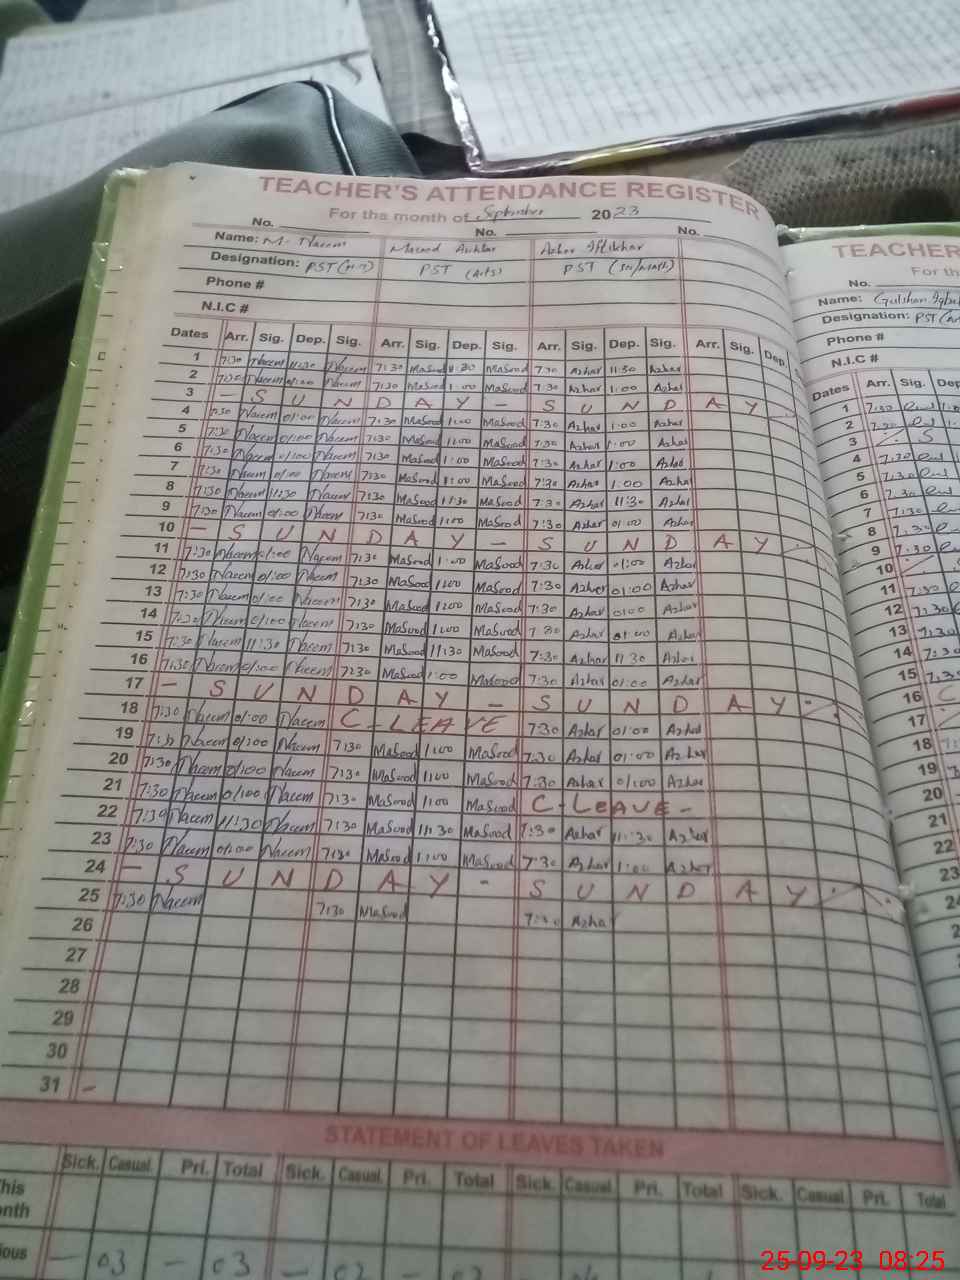 TEACHER'S ATTENDANCE REGISTER
For the month of September 2023
No. No. No.
Name: M. Naeem Masood Akhtar Azhar Iftikhar
Designation: PST PST (Arts) PST (Sci/Math)
Phone #
N.I.C #
Dates Arr. Sig. Dep. Sig. Arr. Sig. Dep. Sig. Arr. Sig. Dep. Sig. Arr. Sig. Dep.
1 7:30 Naeem 11:30 Naeem 7:30 Masood 11:30 Masood 7:30 Azhar 11:30 Azhar
2 7:30 Naeem 01:00 Naeem 7:30 Masood 1:00 Masood 7:30 Azhar 1:00 Azhar
3 - S U N D A Y - S U N D A Y
4 7:30 Naeem 01:00 Naeem 7:30 Masood 1:00 Masood 7:30 Azhar 1:00 Azhar
5 7:30 Naeem 01:00 Naeem 7:30 Masood 1:00 Masood 7:30 Azhar 1:00 Azhar
6 7:30 Naeem 01:00 Naeem 7:30 Masood 1:00 Masood 7:30 Azhar 1:00 Azhar
7 7:30 Naeem 01:00 Naeem 7:30 Masood 1:00 Masood 7:30 Azhar 1:00 Azhar
8 7:30 Naeem 11:30 Naeem 7:30 Masood 11:30 Masood 7:30 Azhar 11:30 Azhar
9 7:30 Naeem 01:00 Naeem 7:30 Masood 1:00 Masood 7:30 Azhar 01:00 Azhar
10 - S U N D A Y - S U N D A Y
11 7:30 Naeem 01:00 Naeem 7:30 Masood 1:00 Masood 7:30 Azhar 01:00 Azhar
12 7:30 Naeem 01:00 Naeem 7:30 Masood 1:00 Masood 7:30 Azhar 01:00 Azhar
13 7:30 Naeem 01:00 Naeem 7:30 Masood 1:00 Masood 7:30 Azhar 01:00 Azhar
14 7:30 Naeem 01:00 Naeem 7:30 Masood 1:00 Masood 7:30 Azhar 01:00 Azhar
15 7:30 Naeem 11:30 Naeem 7:30 Masood 11:30 Masood 7:30 Azhar 11:30 Azhar
16 7:30 Naeem 01:00 Naeem 7:30 Masood 1:00 Masood 7:30 Azhar 01:00 Azhar
17 - S U N D A Y - S U N D A Y
18 7:30 Naeem 01:00 Naeem C-LEAVE 7:30 Azhar 01:00 Azhar
19 7:30 Naeem 01:00 Naeem 7:30 Masood 1:00 Masood 7:30 Azhar 01:00 Azhar
20 7:30 Naeem 01:00 Naeem 7:30 Masood 1:00 Masood 7:30 Azhar 01:00 Azhar
21 7:30 Naeem 01:00 Naeem 7:30 Masood 1:00 Masood C-LEAVE-
22 7:30 Naeem 11:30 Naeem 7:30 Masood 11:30 Masood 7:30 Azhar 11:30 Azhar
23 7:30 Naeem 01:00 Naeem 7:30 Masood 1:00 Masood 7:30 Azhar 1:00 Azhar
24 - S U N D A Y - S U N D A Y
25 7:30 Naeem 7:30 Masood 7:30 Azhar
26
27
28
29
30
31 -
STATEMENT OF LEAVES TAKEN
Sick. Casual. Pri. Total Sick. Casual. Pri. Total Sick. Casual. Pri. Total Sick. Casual. Pri. Total
- 03 - 03 -
TEACHER
For th
No.
Name: Gulshan Iqbal
Designation: PST
Phone #
N.I.C #
Dates Arr. Sig. Dep
1 7:30
2 7:30
3 S
4 7:30
5 7:30
6 7:30
7 7:30
8 7:30
9 7:30
10
11 7:30
12 7:30
13 7:30
14 7:30
15 7:30
16 C
17
18
19
20
21
22
23
24
25-09-23 08:25